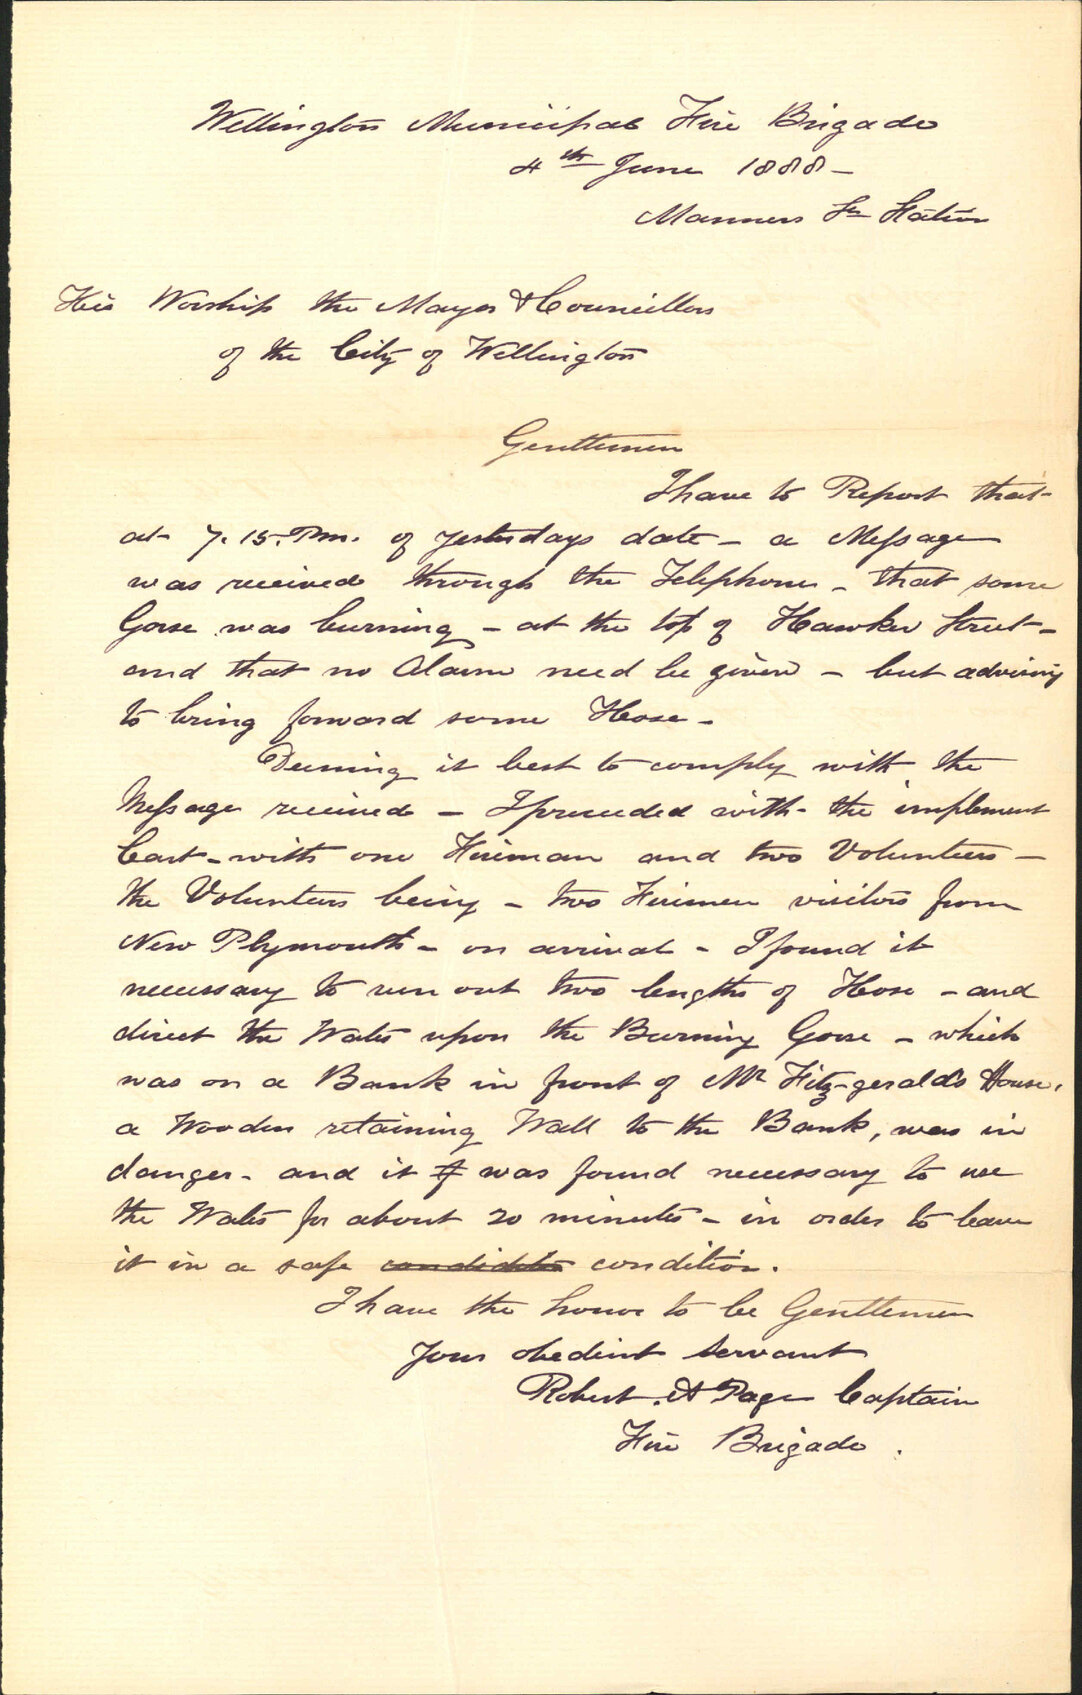 Wellington Municipal Fire Brigade
4th June 1888 -
Manners St Station
His Worship the Mayor & Councillors
of the City of Wellington
Gentlemen
I have to Report that
at 7.15. Pm. of yesterdays date - a Message
was received through the Telephone - that some
Gorse was burning - at the top of Hawker Street -
and that no Alarm need be given - but advising
to bring forward some Hose -
Deeming it best to comply with the
Message received - I proceeded with the implement
Cart - with one Fireman and two Volunteers -
the Volunteers being - two Firemen visitors from
New Plymouth - on arrival - I found it
necessary to run out two lengths of Hose - and
direct the Water upon the Burning Gorse - which
was on a Bank in front of Mr Fitz-gerald's House,
a Wooden retaining Wall to the Bank, was in
danger - and it was found necessary to use
the Water for about 20 minutes - in order to leave
it in a safe condition.
I have the honor to be Gentlemen
Your obedient Servant
Robert. A Page Captain
Fire Brigade.